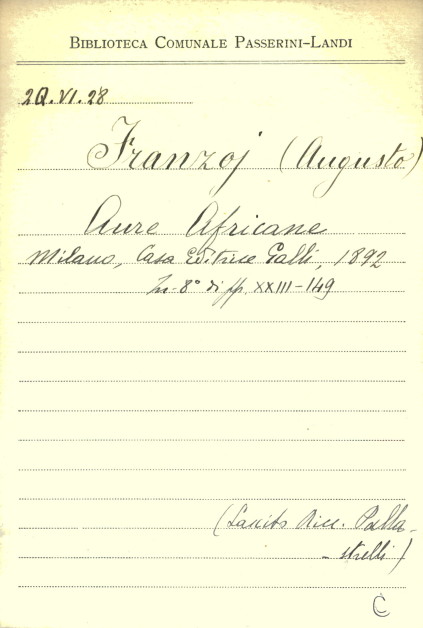 BIBLIOTECA COMUNALE PASSERINI-LANDI
2Q.VI.28
Franzoj (Augusto)
Aure Africane
Milano, Casa Editrice Galli, 1892
In-8° di pp XXIII-149
(Lascito Ricc. Palla-
-strelli)
C